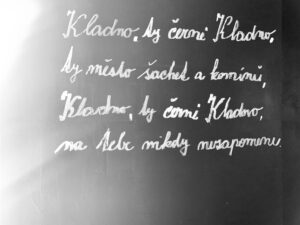 Kladno, ty černé Kladno,
ty město šachet a komínů,
Kladno, ty černé Kladno,
na tebe nikdy nezapomenu.